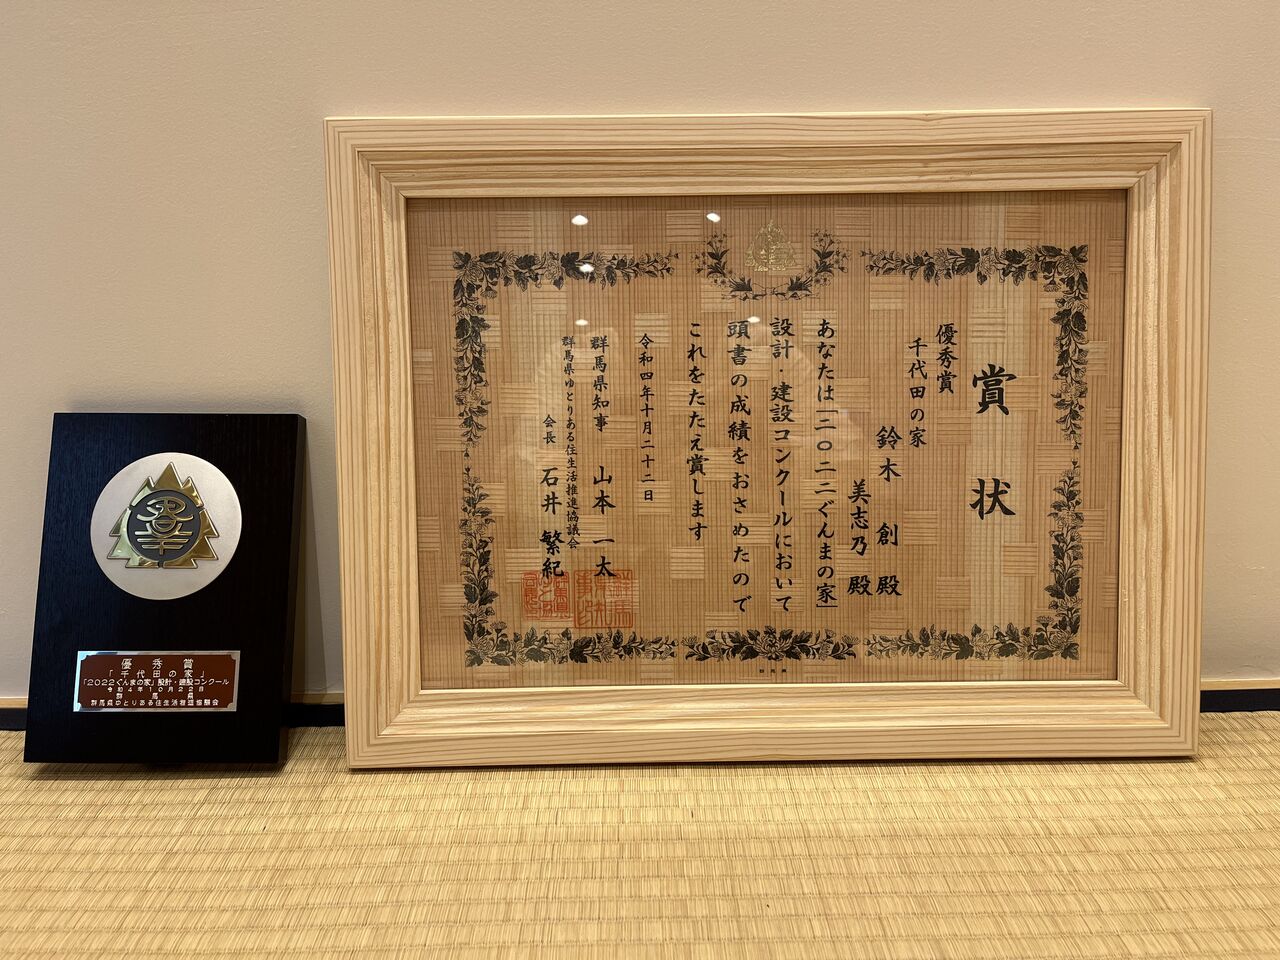 賞状
優秀賞
千代田の家
鈴木 創 殿
美志乃 殿
あなたは「二〇二二ぐんまの家」
設計・建設コンクールにおいて
頭書の成績をおさめたので
これをたたえ賞します
令和四年十月二十二日
群馬県知事 山本 一太
群馬県ゆとりある住生活推進協議会
会長 石井 繁紀
優秀賞
「千代田の家」
「2022ぐんまの家」設計・建設コンクール
令和4年10月22日
群馬県
群馬県ゆとりある住生活推進協議会